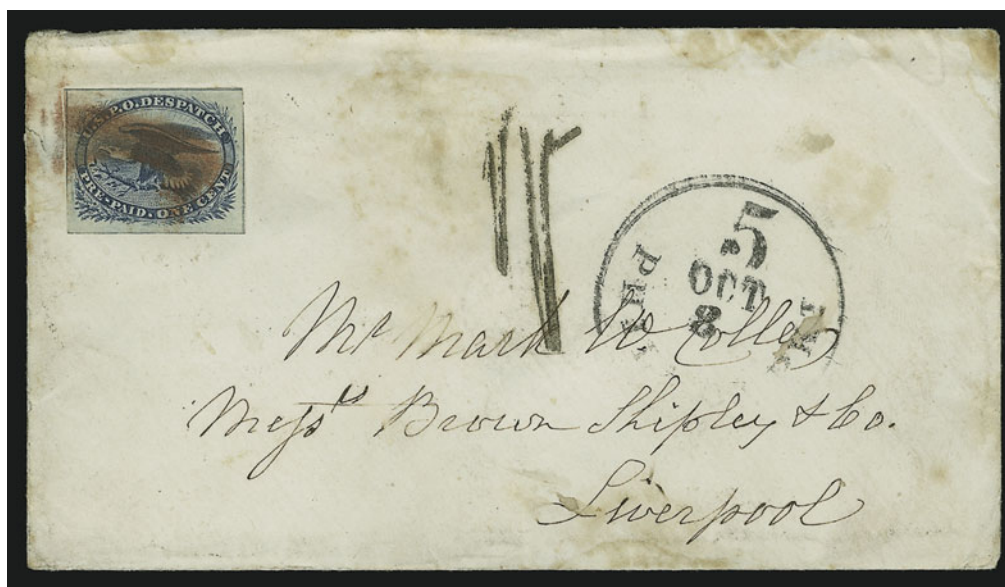 U.S.P.O. DESPATCH
PRE-PAID. ONE CENT
5
OCT
8
Mr Mark W. Collet
Messrs Brown Shipley & Co.
Liverpool